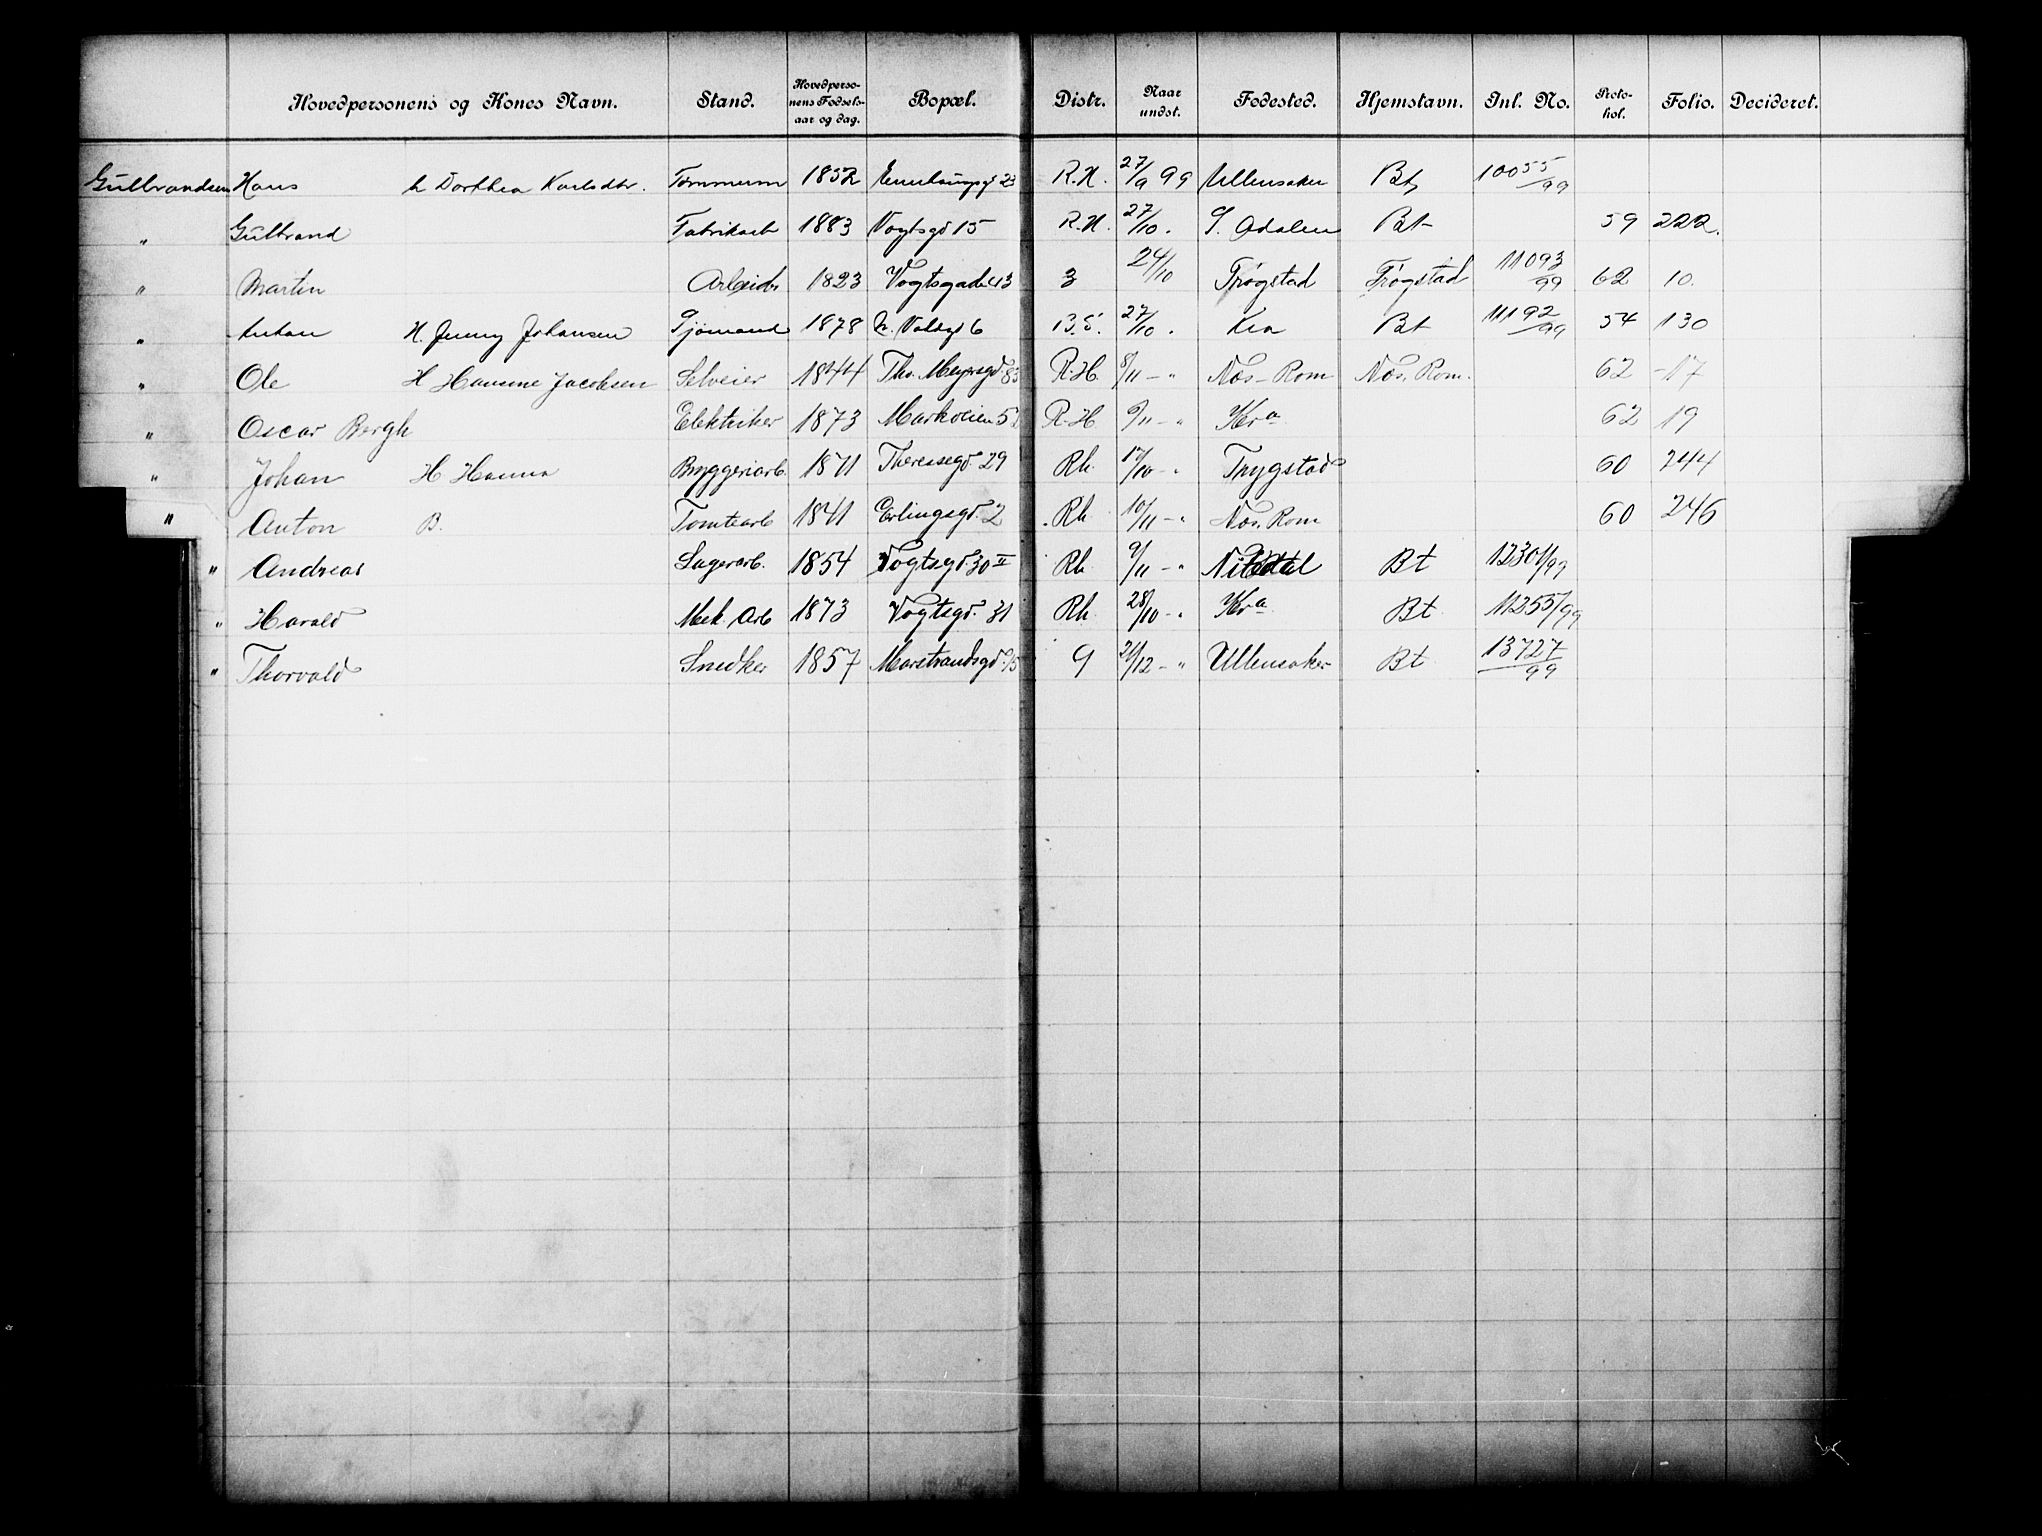 Hovedpersonens og Kones Navn. Stand. Hovedpersonens Fødselsaar og dag. Bopæl. Distr. Naar undst. Fødested. Hjemstavn. Jnl. No. Protokol. Folio. Decideret.
Gulbrandsen Hans h Dorthea Karlsdtr. Tømmerm 1852 23 R.H. 27/9 99 Ullensaker Bt 10055/99
" Gulbrand Fabrikarb 1883 Vogtsgd 15 R.H. 27/10. S. Odalen Bt 59 222.
" Martin Arbeidr 1823 Vogtsgade 43 3 24/10 Trøgstad Trøgstad 11093/99 62 10.
" Anton H. Jenny Johansen Sjømand 1878 6 27/10. Kra Bt 11192/99 54 130
" Ole H Hansine Jacobsen Selveier 1844 Th. Meyersgd. 83 R.H. 8/11 - " Næs-Rom Næs, Rom. 62 - 17
" Oscar Bergh Elektriker 1873 Markveien R.H 9/11 - " Kra 62 19
" Johan H Hanna Bryggeriarb. 1871 Theresesgd. 29 Rh. 17/10 - " Trygstad 60 244
" Anton B. Tomtearb 1841 Erlingsgd. 2 Rh. 10/11 - " Næs, Rom 60 246
" Andreas Lagerarb. 1854 Vogtsgd. 30 II Rh. 9/11 - " Nitedal Bt 12301/99
" Harald Mek. Arb 1873 Vogtsgd. 31 Rh. 28/10 - " Kra Bt. 11355/99
" Thorvald Snedker 1857 Marstrandsgd. 9 21/12 - " Ullensaker Bt 13727/99